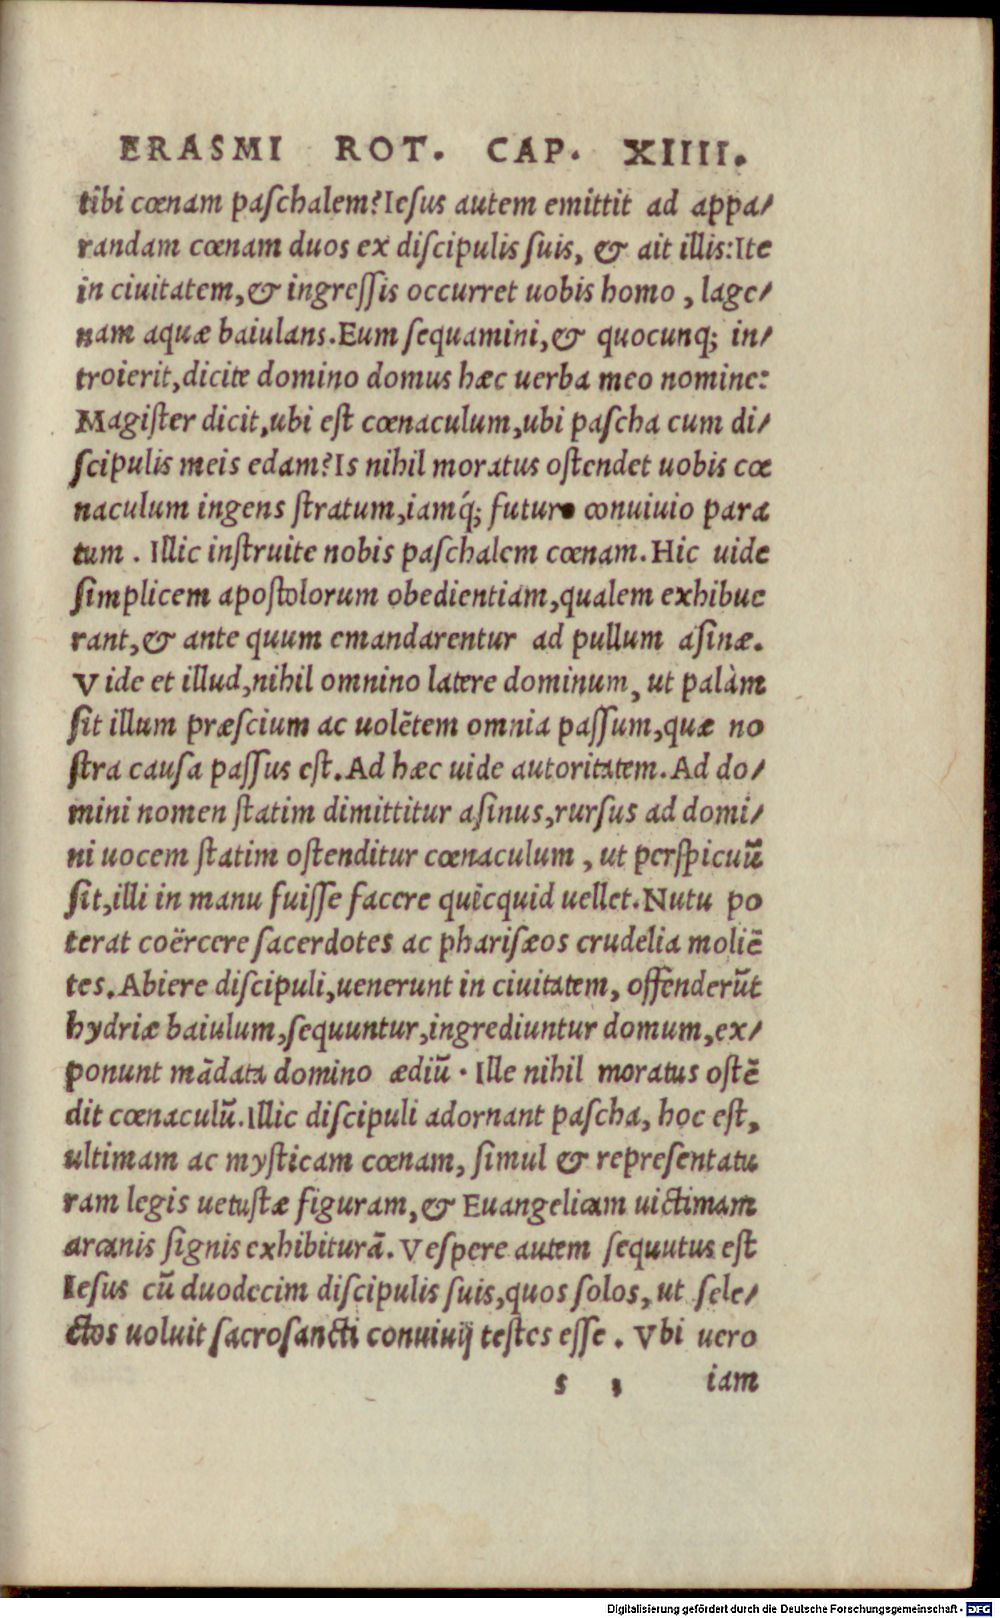 ERASMI ROT. CAP. XIIII.
tibi cœnam paſchalem?Ieſus autem emittit ad appa/
randam cœnam duos ex diſcipulis ſuis, & ait illis:Ite
in ciuitatem,& ingreſſis occurret uobis homo , lage/
nam aquæ baiulans.Eum ſequamini,& quocunq; in/
troierit,dicite domino domus hæc uerba meo nomine:
Magiſter dicit,ubi eſt cœnaculum,ubi paſcha cum di/
ſcipulis meis edam?Is nihil moratus oſtendet uobis cœ
naculum ingens ſtratum,iamq́; futuro conuiuio para
tum . Illic inſtruite nobis paſchalem cœnam.Hic uide
ſimplicem apoſtolorum obedientiam,qualem exhibue
rant,& ante quum emandarentur ad pullum aſinæ.
Vide et illud,nihil omnino latere dominum, ut palàm
ſit illum præſcium ac uolẽtem omnia paſſum,quæ no
ſtra cauſa paſſus eſt.Ad hæc uide autoritatem.Ad do/
mini nomen ſtatim dimittitur aſinus,rurſus ad domi/
ni uocem ſtatim oſtenditur cœnaculum , ut perſpicuũ
ſit,illi in manu fuiſſe facere quicquid uellet.Nutu po
terat coërcere ſacerdotes ac phariſæos crudelia moliẽ
tes.Abiere diſcipuli,uenerunt in ciuitatem, offenderũt
hydriæ baiulum,ſequuntur,ingrediuntur domum,ex/
ponunt mãdata domino ædiũ . Ille nihil moratus oſtẽ
dit cœnaculũ.Illic diſcipuli adornant paſcha, hoc eſt,
ultimam ac myſticam cœnam, ſimul & repreſentatu
ram legis uetuſtæ figuram,& Euangelicam uictimam
arcanis ſignis exhibiturã.Veſpere autem ſequutus eſt
Ieſus cũ duodecim diſcipulis ſuis,quos ſolos, ut ſele/
ctos uoluit ſacroſancti conuiuij teſtes eſſe . Vbi uero
s ʒ iam
Digitalisierung gefördert durch die Deutsche Forschungsgemeinschaft - DFG